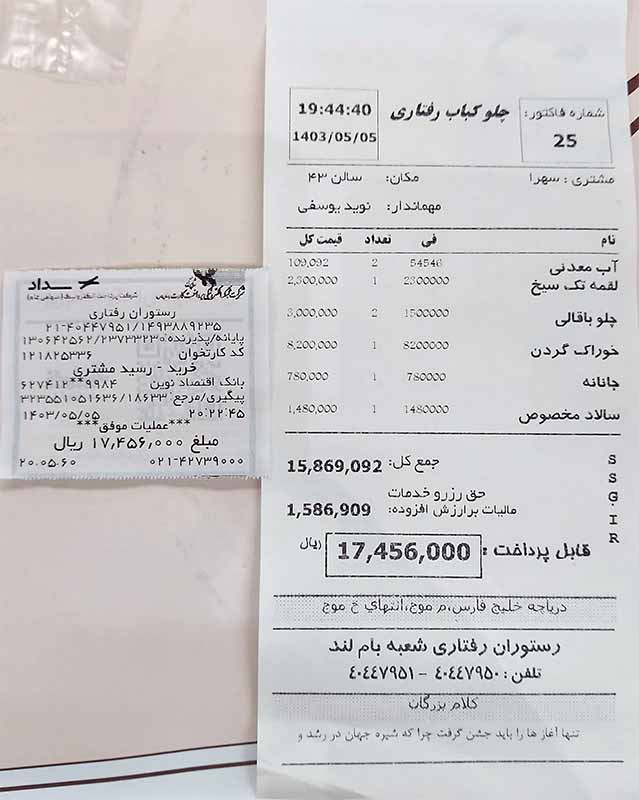 شماره فاکتور:
25
چلو کباب رفتاری
19:44:40
1403/05/05
مشتری : سهرا مکان: سالن ۴۳
مهماندار: نوید یوسفی
نام فی تعداد قیمت کل
آب معدنی 54546 2 109,092
لقمه تک سیخ 2300000 1 2,300,000
چلو باقالی 1500000 2 3,000,000
خوراک گردن 8200000 1 8,200,000
جانانه 780000 1 780,000
سالاد مخصوص 1480000 1 1,480,000
جمع کل: 15,869,092
حق رزرو خدمات
مالیات برارزش افزوده: 1,586,909
قابل پرداخت : 17,456,000 ریال
SSG.IR
دریاچه خلیج فارس،م موج،انتهای خ موج
رستوران رفتاری شعبه بام لند
تلفن : ۴۰۴۴۷۹۵۰ - ۴۰۴۴۷۹۵۱
کلام بزرگان
تنها آغاز ها را باید جشن گرفت چرا که شیره جهان در رشد و
سداد
رستوران رفتاری
۰۲۱-۴۰۴۴۷۹۵۱/۱۴۹۳۸۸۹۲۳۵
پایانه/پذیرنده:۱۳۰۶۴۲۵۶۲/۲۳۷۳۳۲۳۰
کد کارتخوان ۱۲۱۸۲۵۳۳۶
خرید - رسید مشتری
بانک اقتصاد نوین ۶۲۷۴۱۲**۹۹۸۴
پیگیری/مرجع:۳۲۳۵۵۱۰۵۱۶۳۶/۱۸۶۳۳
۱۴۰۳/۰۵/۰۵ ۲۰:۲۲:۴۵
***عملیات موفق***
مبلغ ۱۷,۴۵۶,۰۰۰ ریال
۲۰.۰۵.۶۰ ۰۲۱-۴۲۷۳۹۰۰۰